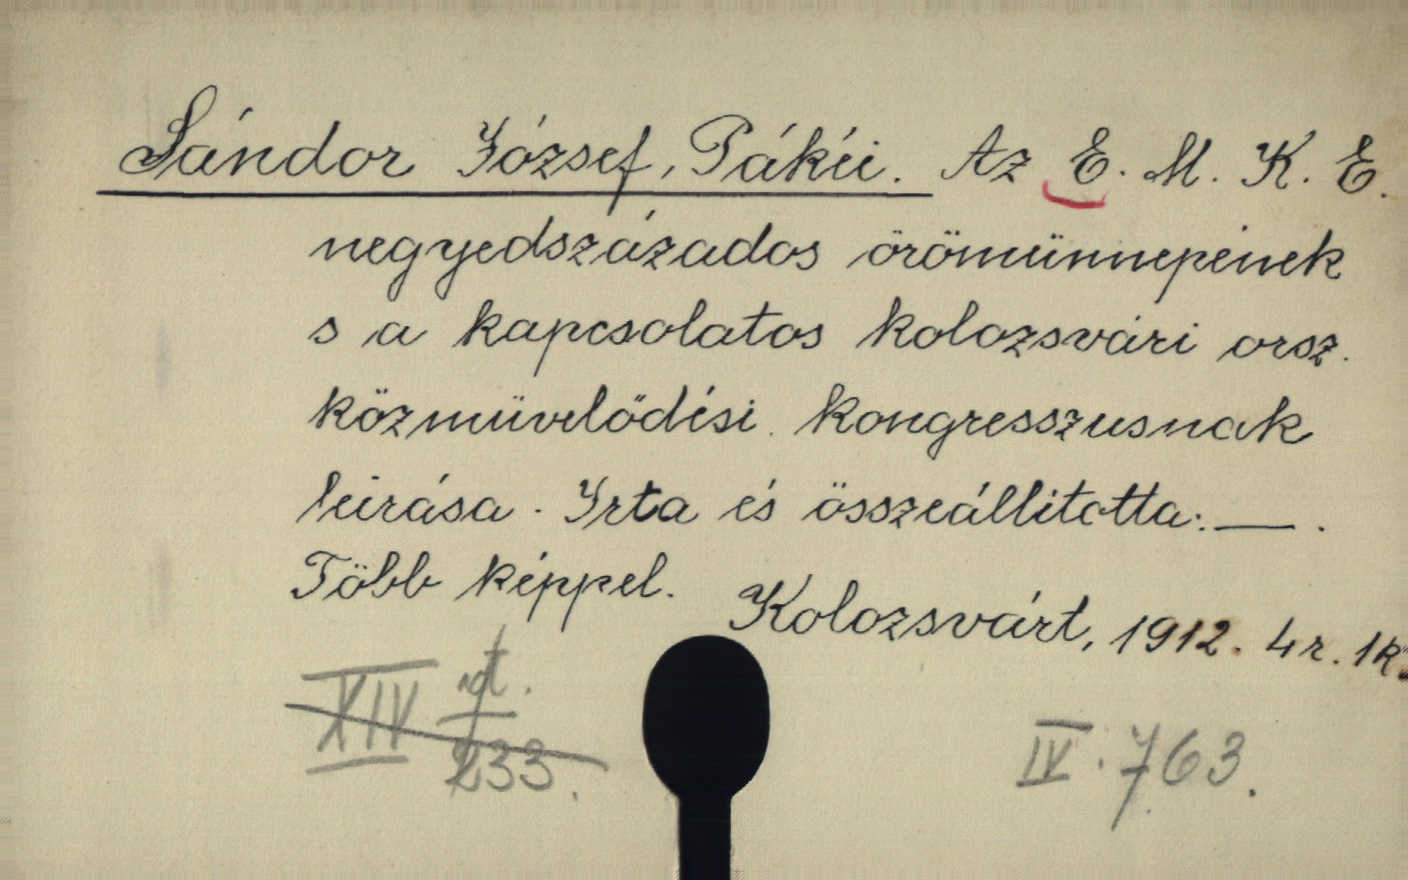 Sándor József, Pákéi. Az E. M. K. E.
negyedszázados örömünnepének
s a kapcsolatos kolozsvári orsz.
közmüvelődési kongresszusnak
leirása. Irta és összeállitotta: — .
Több képpel. Kolozsvárt, 1912. 4r. 1k.
XIV 233.
IV. 763.